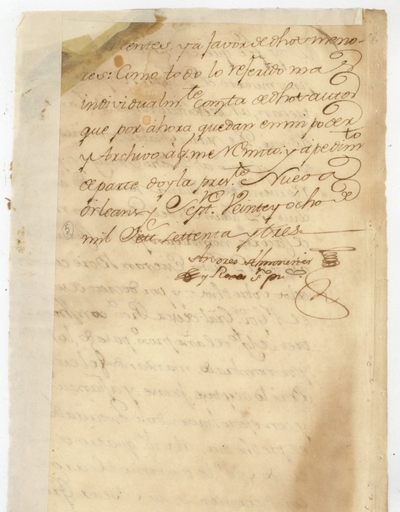 y a favor de dhos meno-
res: Como todo lo referido mas
individualmte. consta de dhos autos
que por ahora quedan en mi poder
y Archivo a q. me remito; y a pedimto
de parte doy la preste. Nueva
Orleans y Sepre. Veinte y ocho de
mil Setz. settenta y tres
Andres Almonester
y Roxas